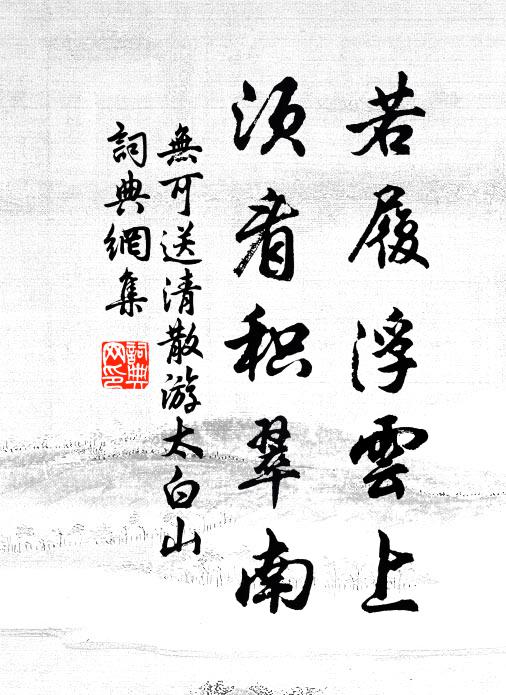 若履浮雲上
須看积翠南
無可送清散游太白山
詞典網集
詞典
网印